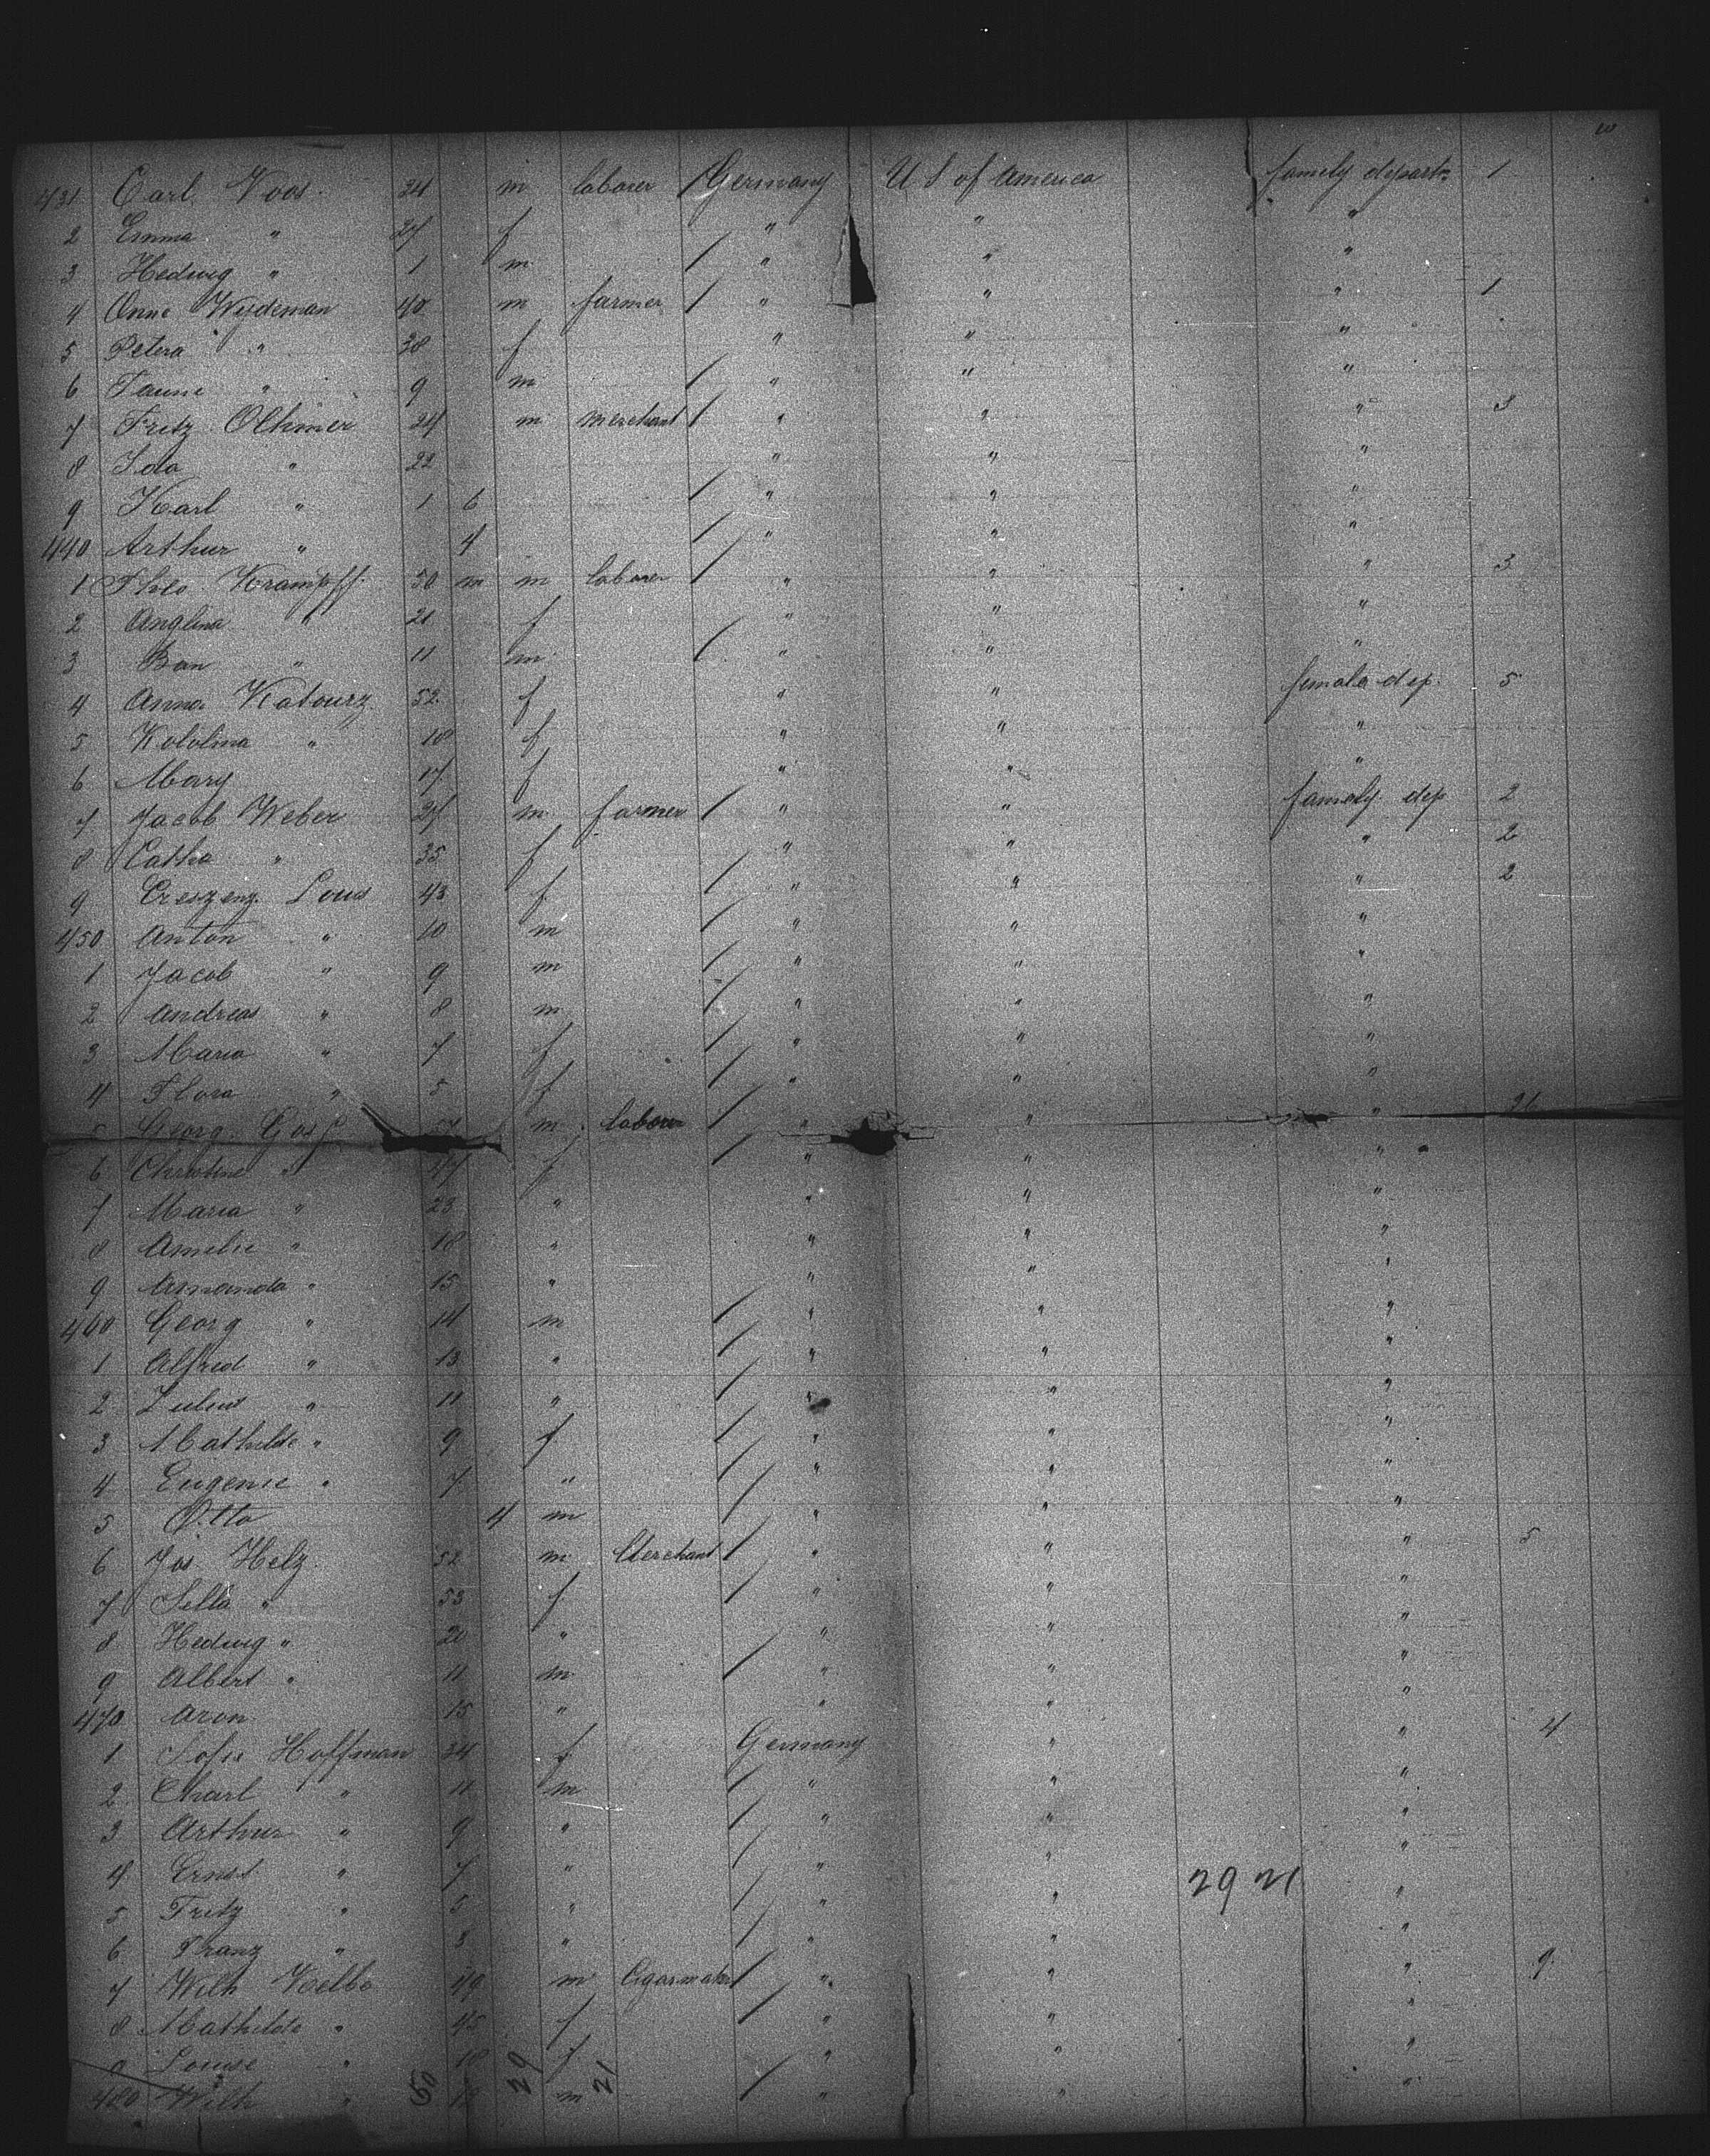 431 Carl Voos 24 m laborer / Germany U S of America famely depart. 1
2 Emma " 27 f " " "
3 Hedwig " 1 m / " " "
4 Onne 40 m farmer / " " " 1
5 Petera " 38 f " " "
6 " 9 m / " " "
7 Fritz Olhmer 24 m merchant / " " " 3
8 Ida " 22 " " "
9 Karl " 1 6 / " " "
440 Arthur " 4 / " " "
1 Theo Krampff 50 m m laborer / " " " 3
2 Anglina " 21 f " " "
3 Ban " 11 m / " " "
4 Anna Katourz 52 f " " female dep. 5
5 " 18 f " " "
6 Mary 17 f " " "
7 Jacob Weber 27 m farmer / " " famely dep 2
8 Catha " 35 f " " " 2
9 Creszenz Lous 43 f / " " " 2
450 Anton " 10 m / " " "
1 Jacob " 9 m / " " "
2 Andreas " 8 m / " " "
3 Maria " 7 f / " " "
4 Flora " 5 f / " " "
5 Georg m laborer / " " "
6 Christine " 47 f / " " "
7 Maria " 23 " " " "
8 Amelie " 18 " " " "
9 Amanda " 15 " " " "
460 Georg " 14 m / " " "
1 Alfred " 13 " / " " "
2 Julius " 11 " / " " "
3 Mathilde " 9 f / " " "
4 Eugenie " 7 " / " " "
5 Otto 4 m / " " "
6 Jos Helz 52 m Merchant / " " " 5
7 Sella " 53 f / " " "
8 Hedwig " 20 " " " "
9 Albert " 11 m / " " "
470 Aron 15 " " " "
1 Sofie Hoffman 34 f Germany " " 4
2 Charl " 11 m / " " "
3 Arthur " 9 " / " " "
4 Ernst " 7 " / " " "
29 21
5 Fritz " 5 " / " " "
6 Franz " 3 " / " " "
7 Wilh Voelbe 49 m Cigarmaker / " " " 9
8 Mathilde " 45 f / " " "
9 Louise " 18 f " " "
480 Wilh " m / " " "
50 29 21